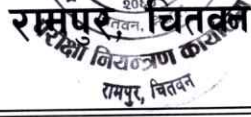 रामपुर, चितवन
परीक्षा नियन्त्रण कार्या
रामपुर, चितवन